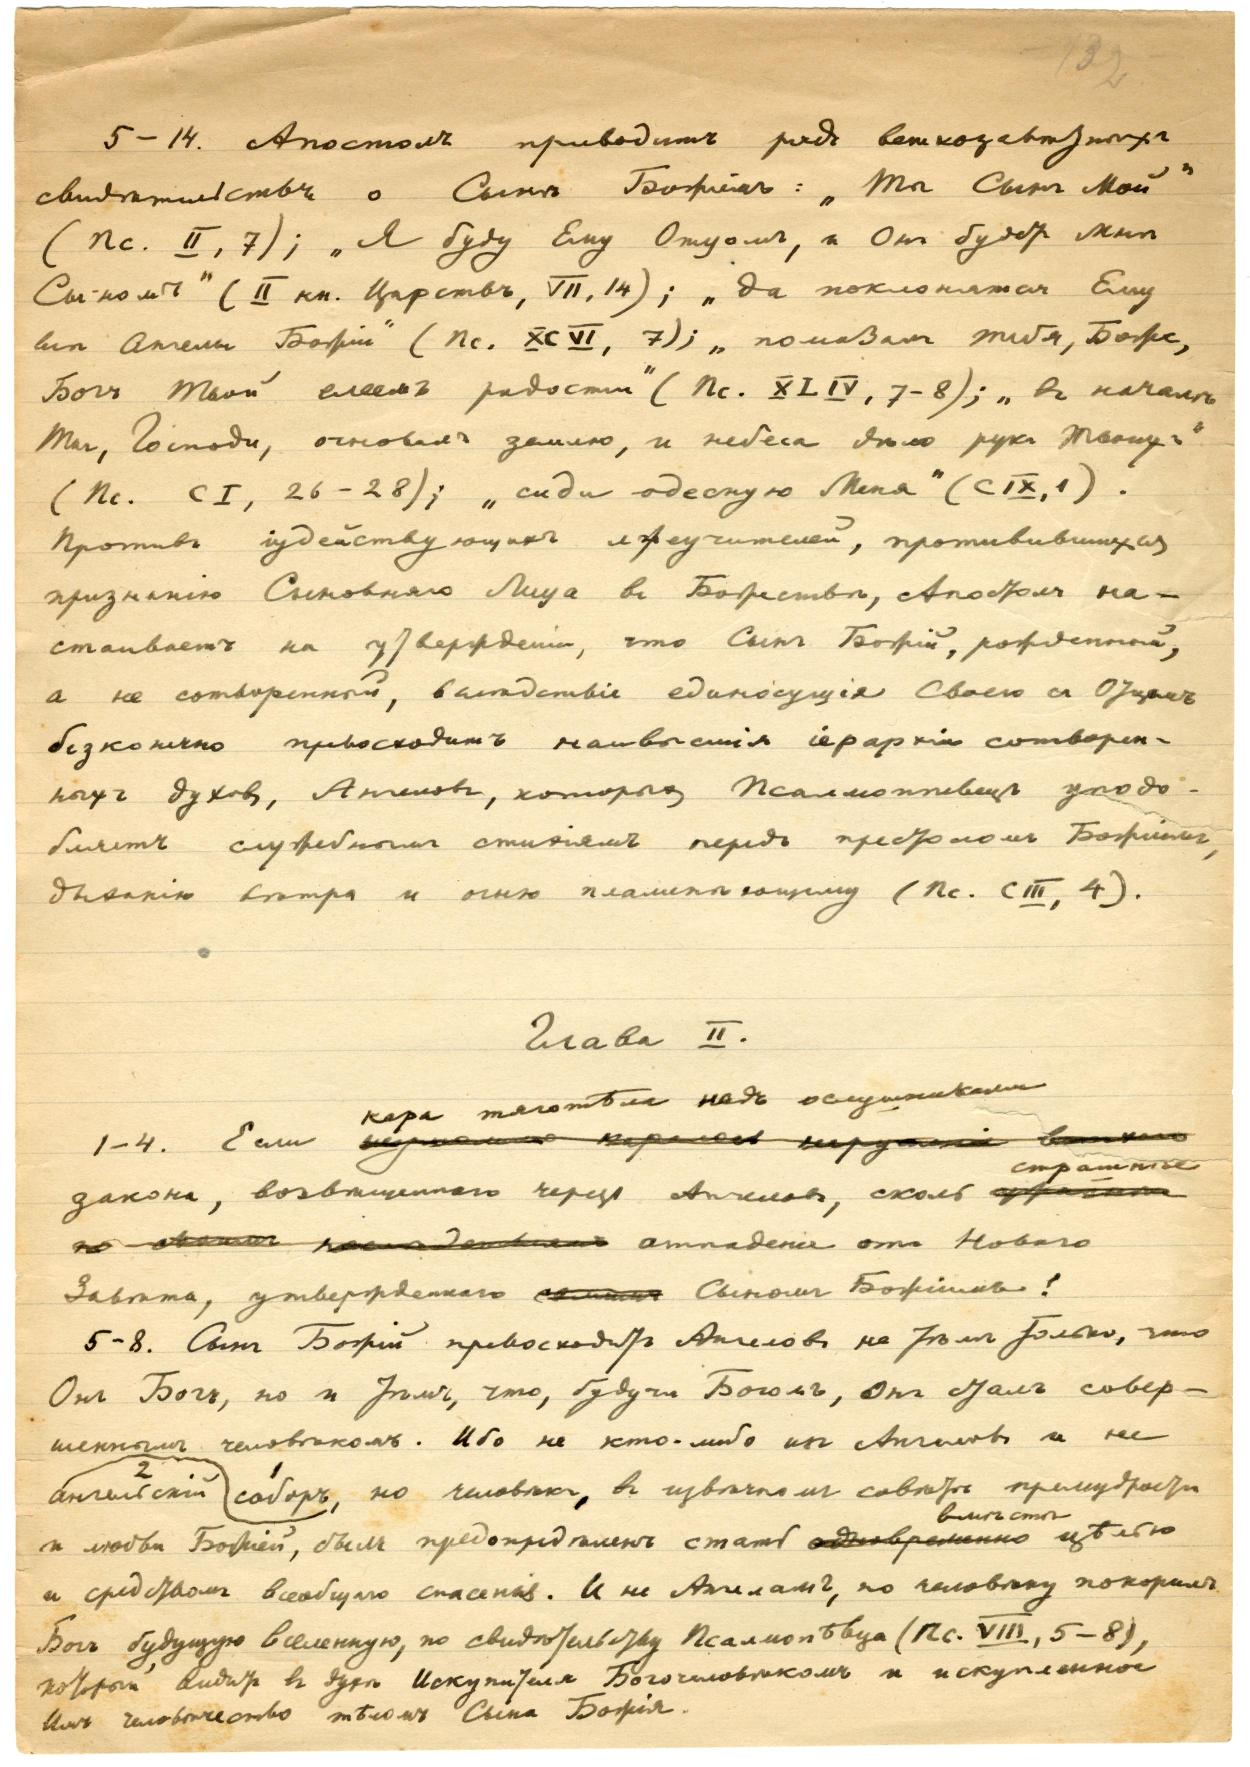 132
5–14. Апостолъ приводитъ рядъ ветхозавѣтныхъ
свидѣтельствъ о Сынѣ Божіемъ: „Ты Сынъ Мой"
(Пс. II, 7); „Я буду Ему Отцомъ, и Онъ будетъ Мнѣ
Сыномъ" (II кн. Царствъ, VII, 14); „да поклонятся Ему
всѣ Ангелы Божіи" (Пс. XCVI, 7); „помазалъ тебя, Боже,
Богъ Твой елеемъ радости" (Пс. XLIV, 7–8); „въ началѣ
Ты, Господи, основалъ землю, и небеса дѣло рукъ Твоихъ"
(Пс. CI, 26–28); „сиди одесную Меня" (CIX, 1).
Противъ іудействующихъ лжеучителей, противившихся
признанію Сыновняго Лица въ Божествѣ, Апостолъ на-
стаиваетъ на утвержденіи, что Сынъ Божій, рожденный,
а не сотворенный, вслѣдствіе единосущія Своего съ Отцемъ
безконечно превосходитъ наивысшія іерархіи сотворен-
ныхъ духовъ, Ангеловъ, которыхъ Псалмопѣвецъ уподо-
бляетъ служебнымъ стихіямъ передъ престоломъ Божіимъ,
дыханію вѣтра и огню пламенѣющему (Пс. CIII, 4).
Глава II.
кара тяготѣла надъ ослушниками
1–4. Если
страшнѣе
закона, возвѣщеннаго черезъ Ангеловъ, сколь
по своимъ послѣдствіямъ отпаденіе отъ Новаго
Завѣта, утвержденнаго самимъ Сыномъ Божіимъ!
5–8. Сынъ Божій превосходитъ Ангеловъ не тѣмъ только, что
Онъ Богъ, но и тѣмъ, что, будучи Богомъ, Онъ сталъ совер-
шеннымъ человѣкомъ. Ибо не кто-либо изъ Ангеловъ и не
2 1
ангельскій соборъ, но человѣкъ, въ извѣчномъ совѣтѣ премудрости
вмѣстѣ
и любви Божіей, былъ предопредѣленъ стать одновременно цѣлью
и средствомъ всеобщаго спасенія. И не Ангеламъ, но человѣку покорилъ
Богъ будущую вселенную, по свидѣтельству Псалмопѣвца (Пс. VIII, 5–8),
который видитъ въ духѣ Искупителя Богочеловѣкомъ и искупленное
Имъ человѣчество тѣломъ Сына Божія.